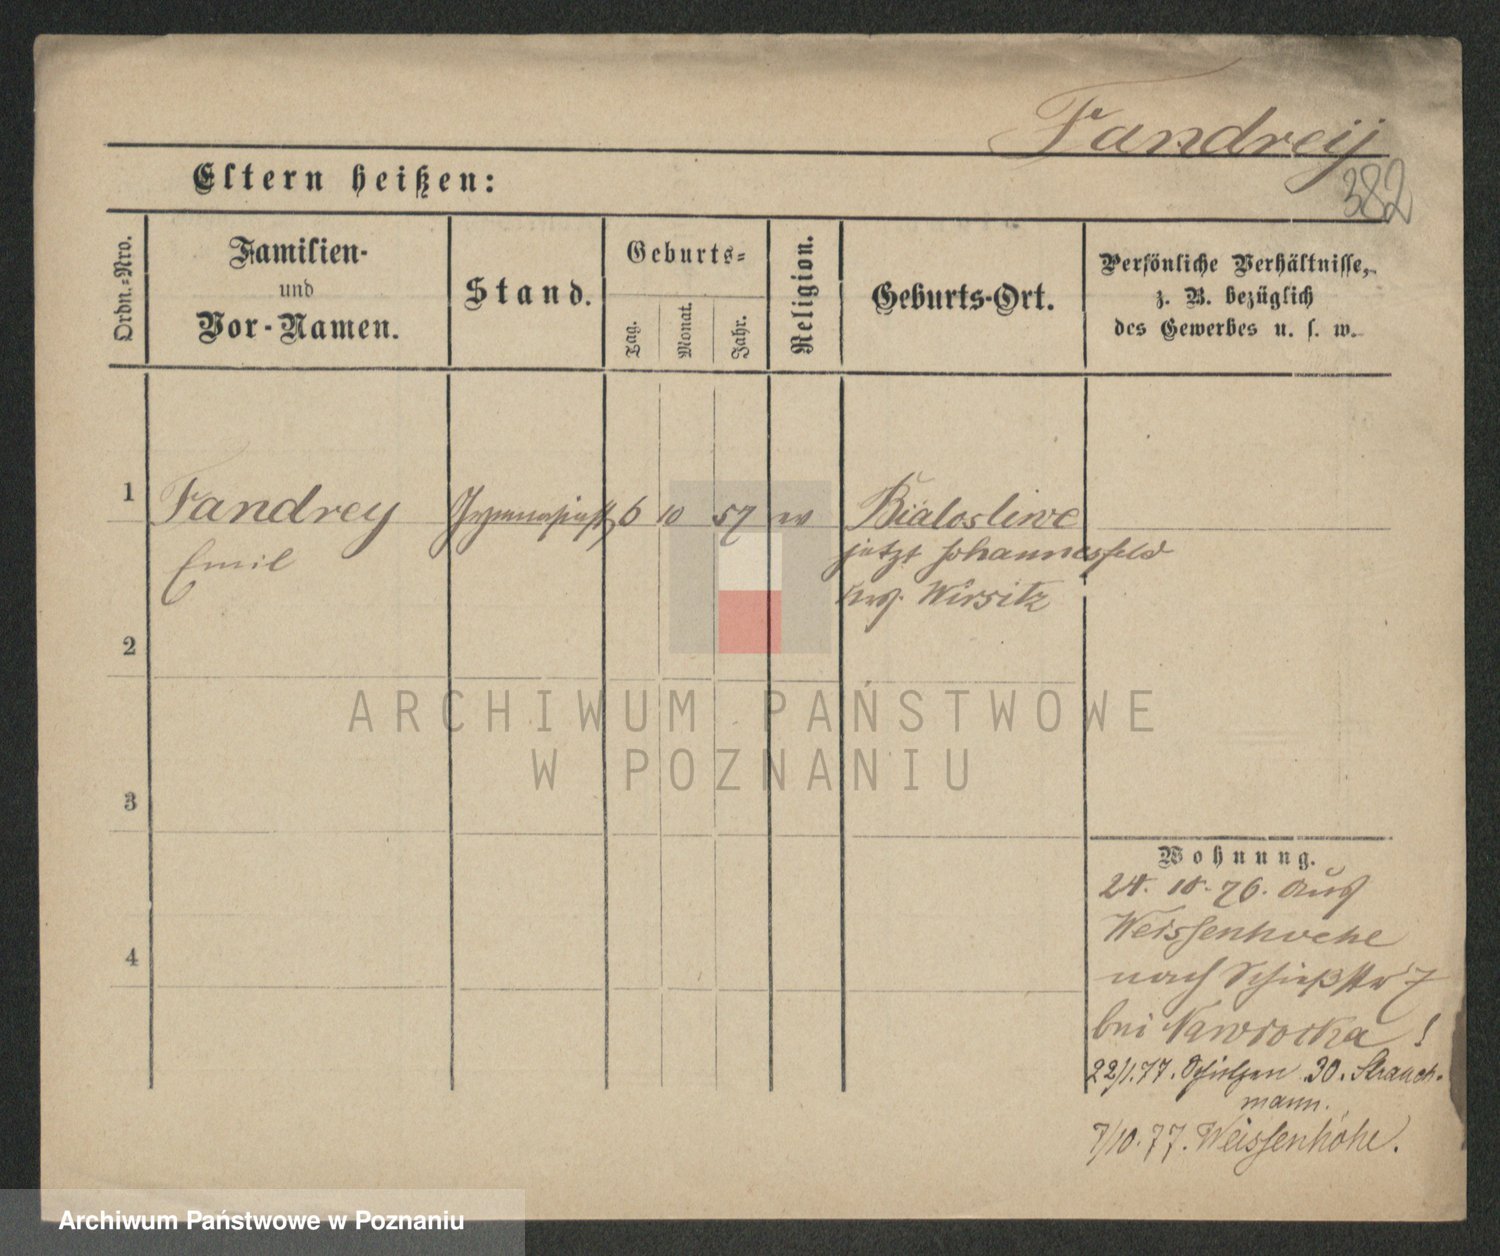 Fandreij
382
Eltern heißen:
Ordn.-Nro.
Familien-
und
Vor-Namen.
Stand.
Geburts-
Tag.
Monat.
Jahr.
Religion.
Geburts-Ort.
Persönliche Verhältnisse,
z. B. bezüglich
des Gewerbes u. s. w.
1 Fandrey Gymnasiast 6 10 57 ev Bialosliwe
Emil jetzt Johannesfeld
Krs. Wirsitz
2
3
4
Wohnung.
24. 10. 76. aus
Weissenhoehe
nach Schießstr 7
bei Nawrocka!
22/1.77. Schützen 30. Strauch-
mann.
7/10.77. Weissenhöhe.
ARCHIWUM PAŃSTWOWE
W POZNANIU
Archiwum Państwowe w Poznaniu